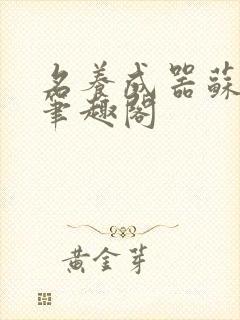 名養成器蘇
筆趣閣
黃金芽